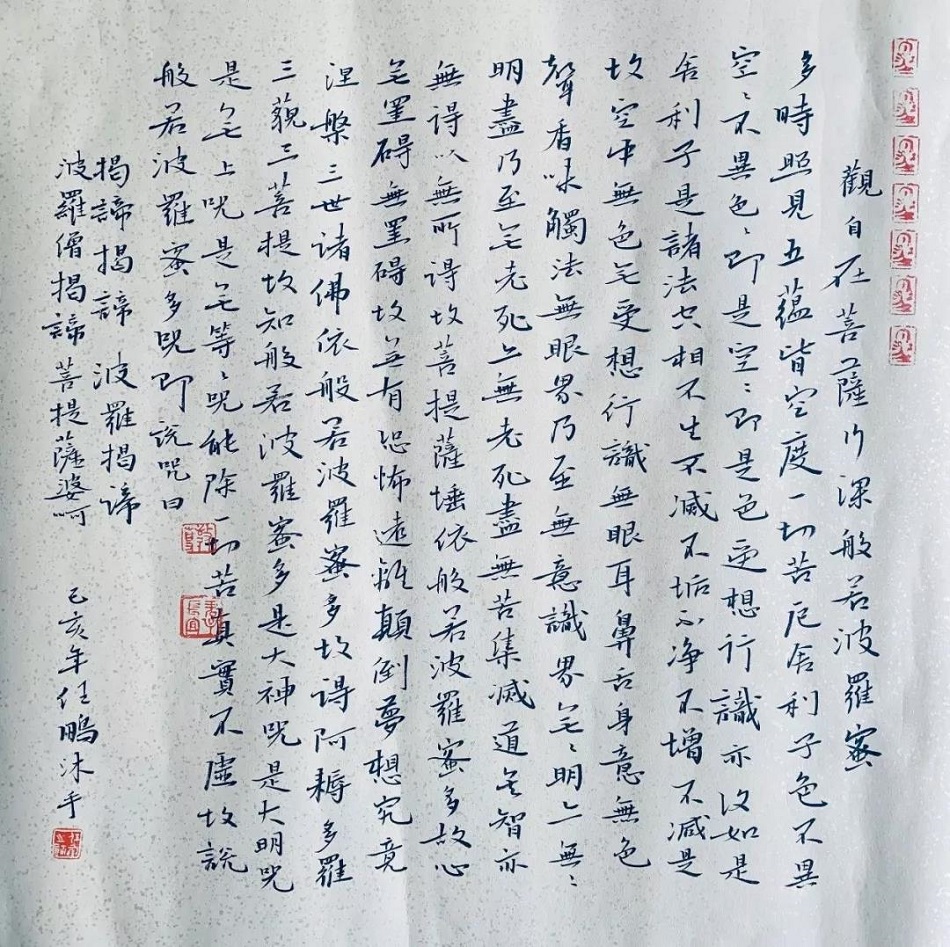 觀自在菩薩行深般若波羅蜜
多時照見五蘊皆空度一切苦厄舍利子色不異
空〻不異色〻即是空〻即是色受想行識亦復如是
舍利子是諸法空相不生不滅不垢不净不增不減是
故空中無色无受想行識無眼耳鼻舌身意無色
聲香味觸法無眼界乃至無意識界无〻明亡無〻
明盡乃至无老死亡無老死盡無苦集滅道无智亦
無得以無所得故菩提薩埵依般若波羅蜜多故心
无罣碍無罣碍故無有恐怖遠離顛倒夢想究竟
涅槃三世諸佛依般若波羅蜜多故得阿耨多羅
三藐三菩提故知般若波羅蜜多是大神咒是大明咒
是无上咒是无等〻咒能除一切苦真實不虛故説
般若波羅蜜多咒即説咒曰
揭諦揭諦 波羅揭諦
波羅僧揭諦 菩提薩婆呵
己亥年任鵬沐手